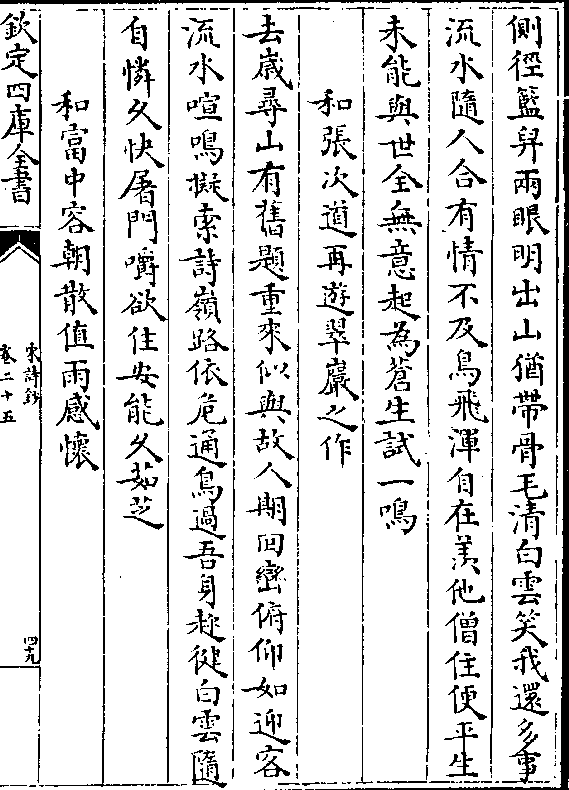 側徑籃舁兩眼明出山猶帶骨毛清白雲笑我還多事
流水隨人合有情不及鳥飛渾自在羨他僧住便平生
未能與世全無意起為蒼生試一鳴
和張次道再遊翠巖之作
去歳尋山有舊題重來似與故人期回巒俯仰如迎客
流水喧鳴擬索詩嶺路依危通鳥過吾身趂健白雲隨
自憐久快屠門嚼欲住安能久茹芝
和富中容朝散值雨感懷
欽定四庫全書
宋詩鈔
卷二十五
四九